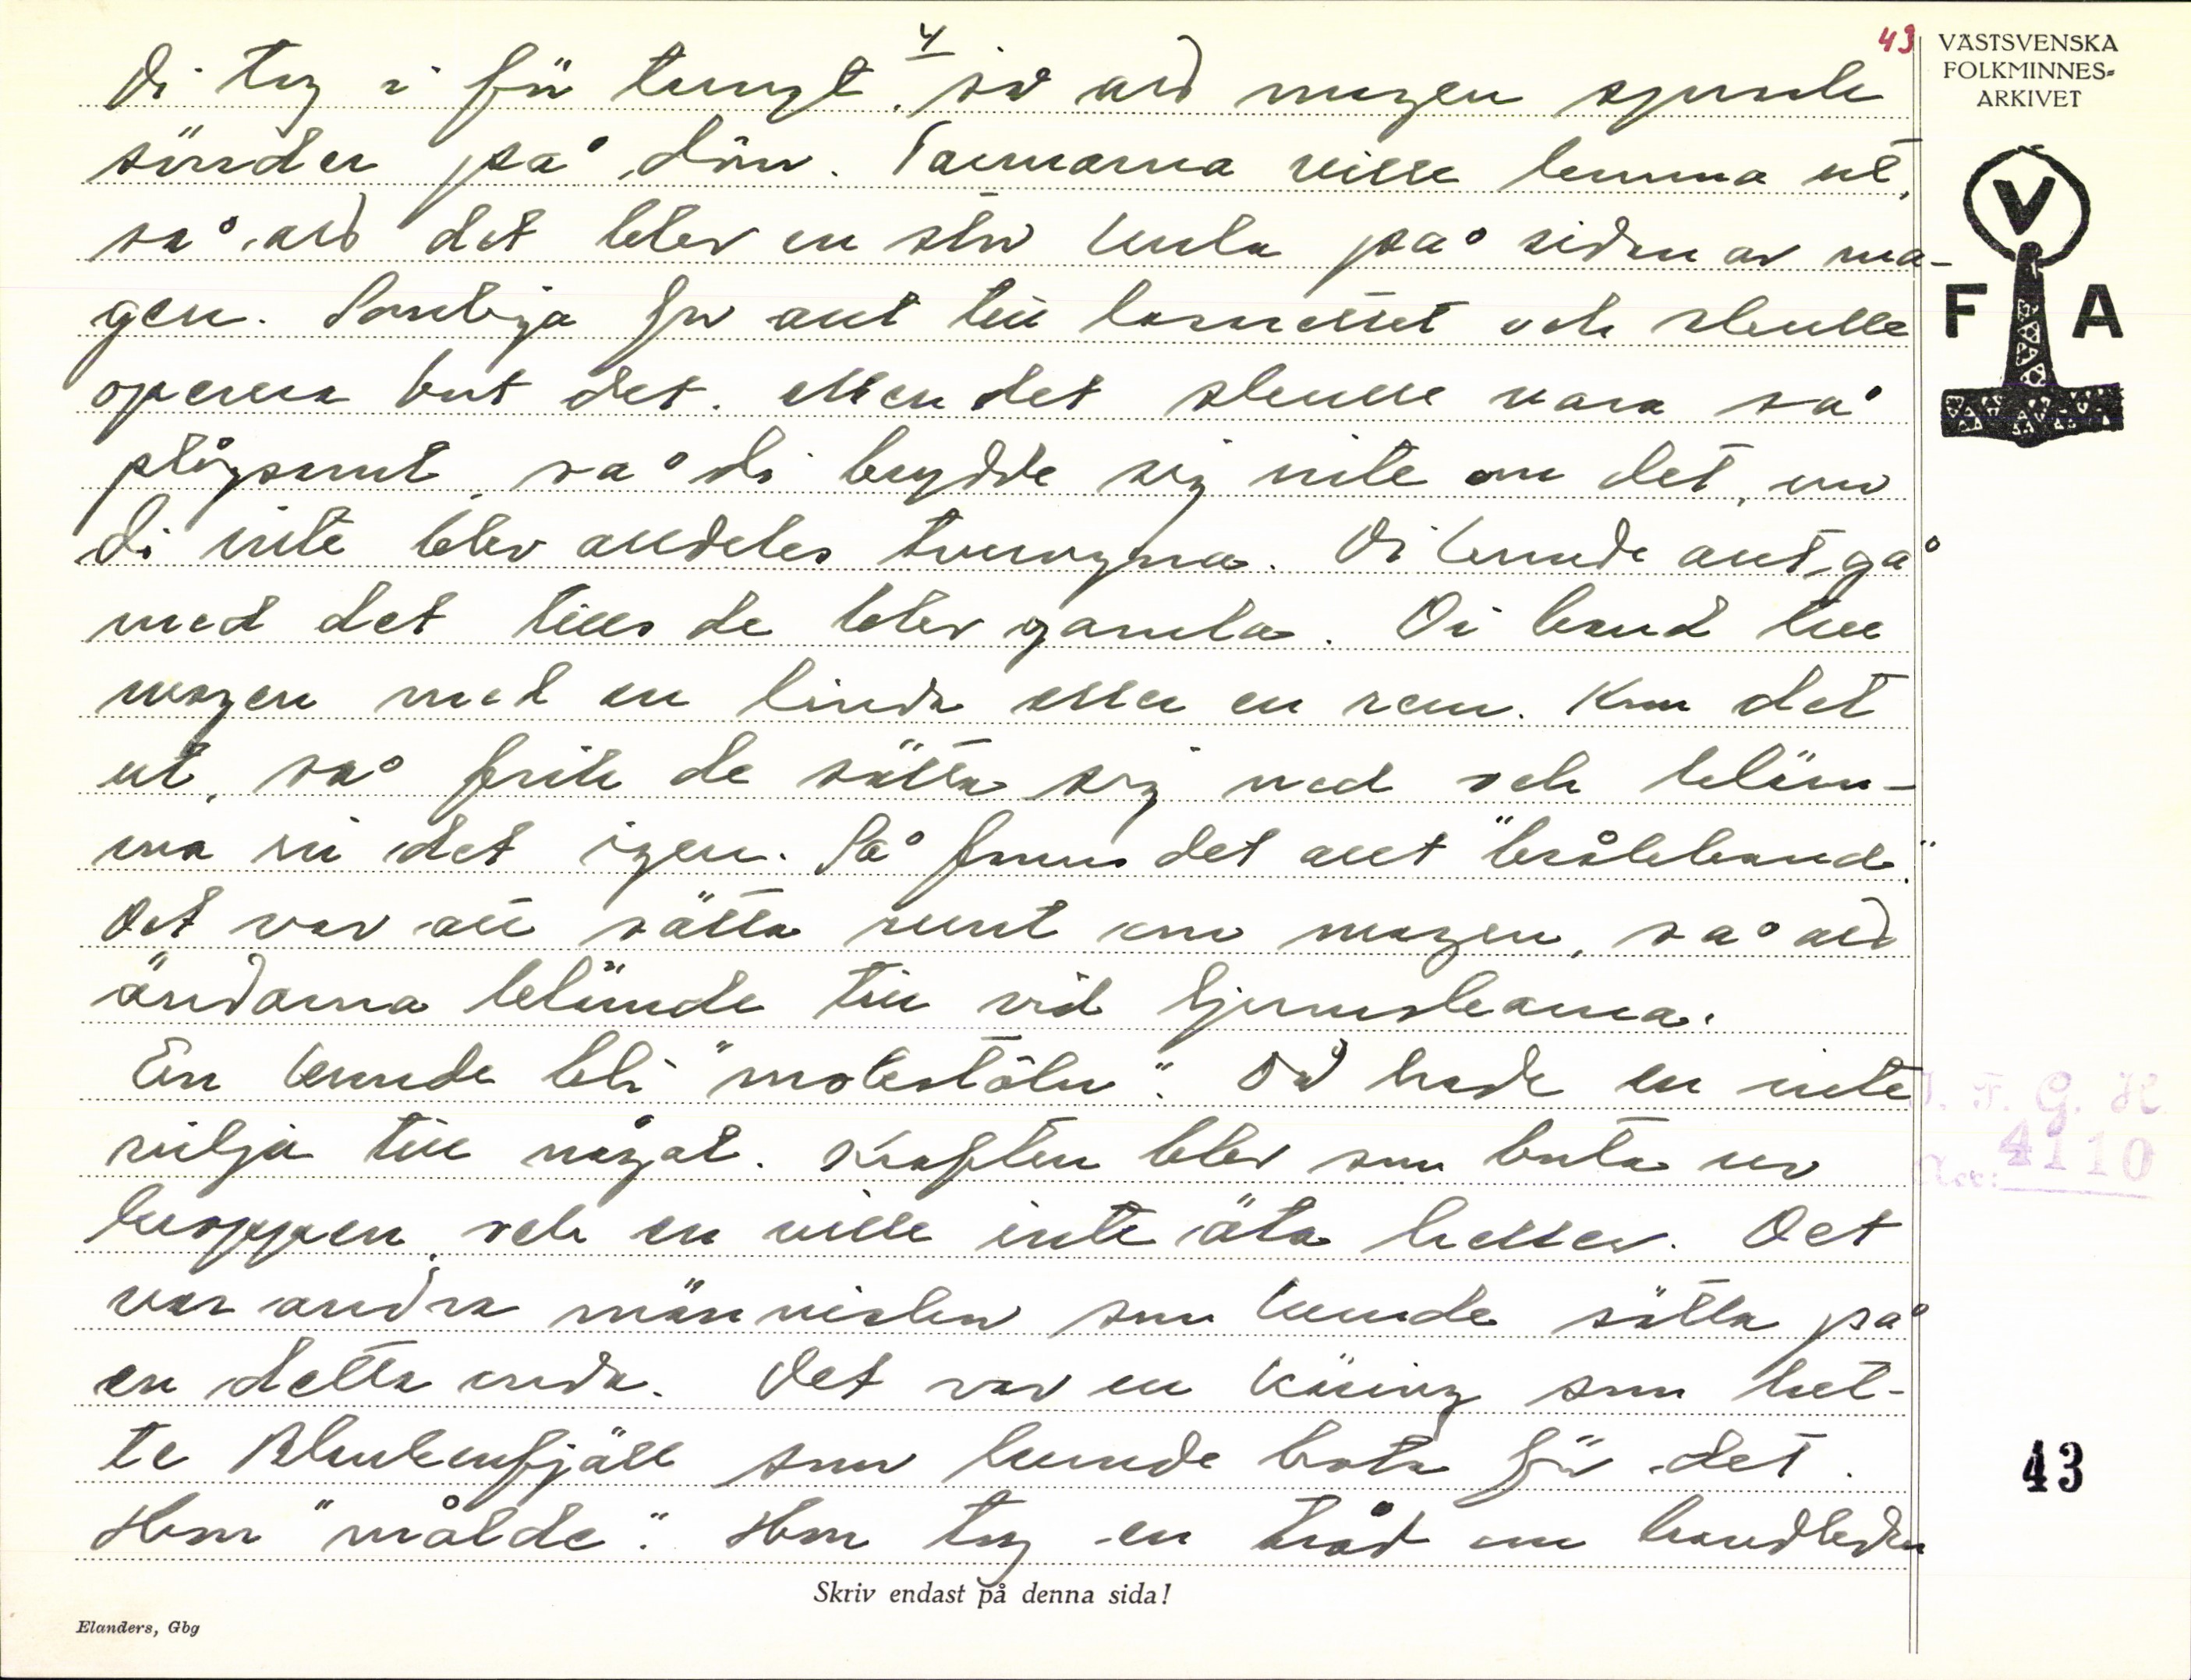 4
43
VÄSTSVENSKA
FOLKMINNES-
ARKIVET
V
F A
Di tog i för tungt, så att magen sprack
sönder på dom. Tarmarna ville komma ut,
så att det blev en stor kula på sidan av ma-
gen. Somliga for ant till lasarettet och skulle
operera bort det. Men det skulle vara så
plågsamt, så di brydde sig inte om det, om
di inte blev alldeles tvungna. Di kunde ant gå
med det tills de blev gamla. Di band till
magen med en linda eller en rem. Kom det
ut, så fick de sätta sig ned och kläm-
ma in det igen. Så fanns det ant "bråkband".
Det var att sätta runt om magen, så att
ändarna klämde till vid ljumskarna.
En kunde bli "motestôln". Då hade en inte
vilja till något. Kraften blev som borta ur
kroppen, och en ville inte äta heller. Det
var andra människor som kunde sätta på
en detta onda. Det var en käring som het-
te Blankenfjäll som kunde bota för det.
Hon "målde". Hon tog en tråd om handleden
J. F. G. H.
Acc: 4110
43
Skriv endast på denna sida!
Elanders, Gbg